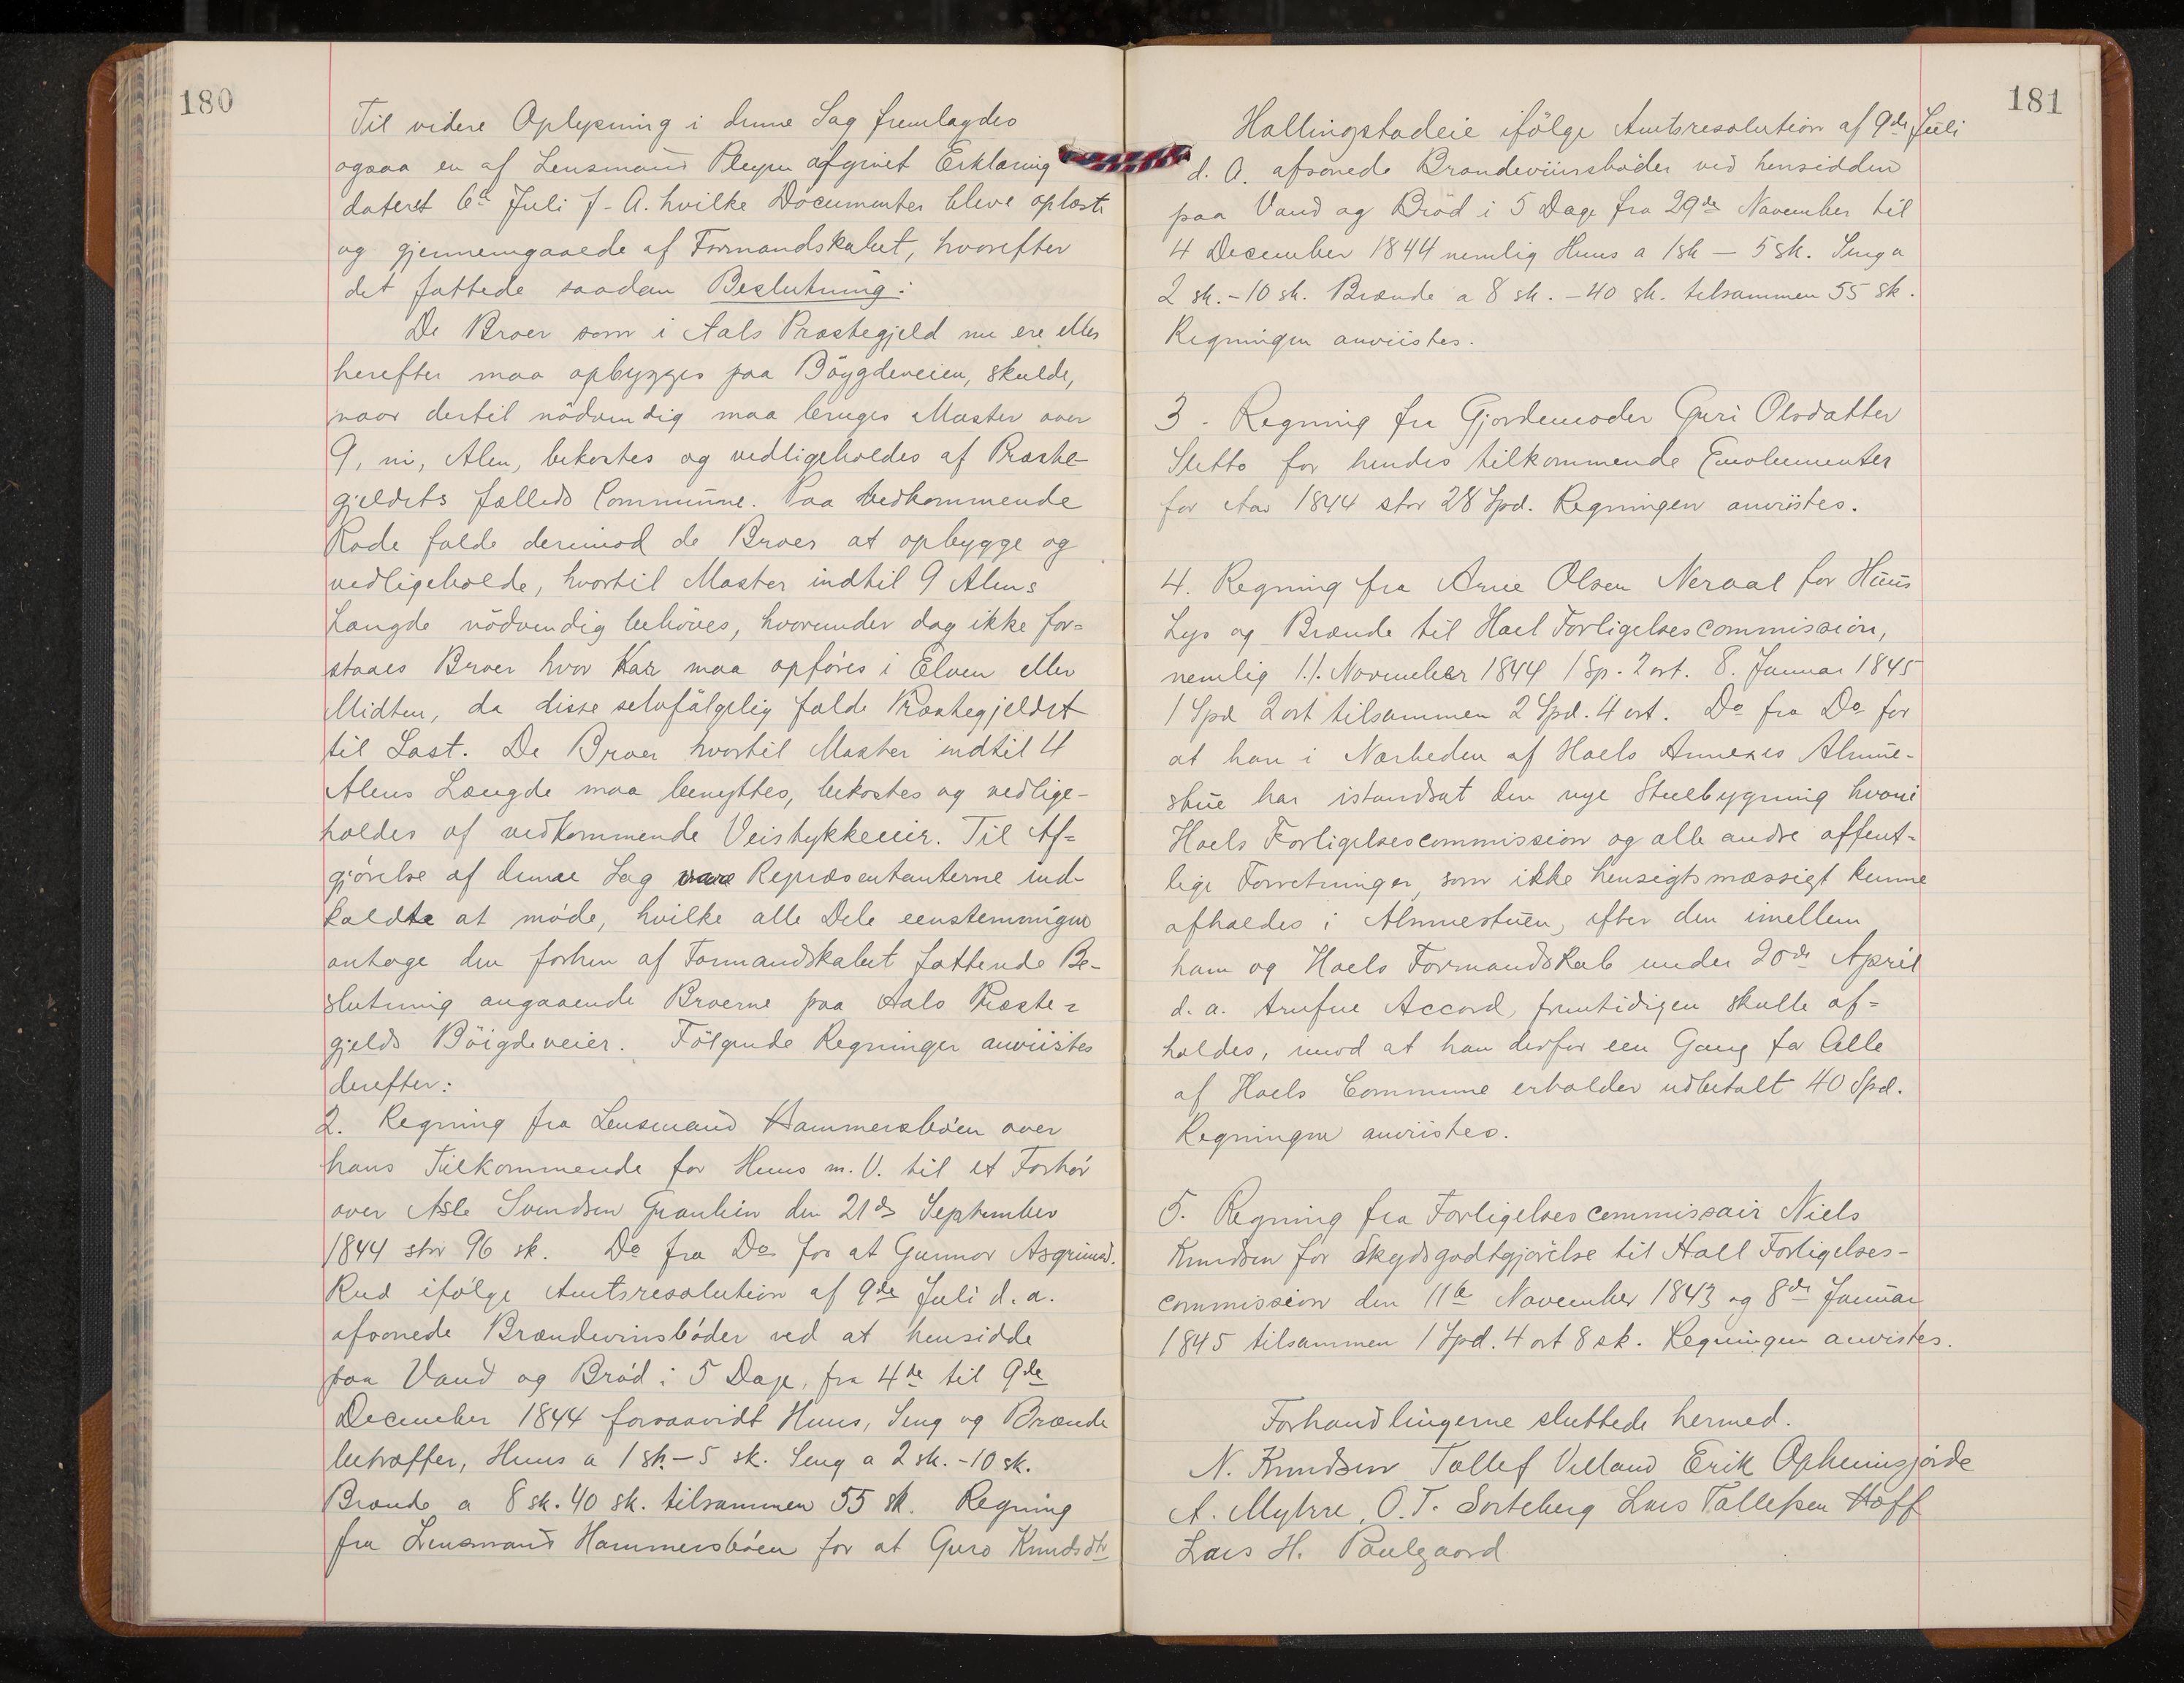 180
Til videre Oplysning i denne Sag fremlagdes
ogsaa en af Lensmand afgivet Erklæring
dateret 6te Juli f. A. hvilke Documenter bleve oplæste
og gjennemgaaede af Formandskabet, hvorefter
det fattede saadan Beslutning:
De Broer som i Aals Præstegjeld nu ere eller
herefter maa opbygges paa Böygdeveien, skulde,
naar dertil nödvendig maa bruges Master over
9, ni, Alen, bekostes og vedligeholdes af Præste-
gjeldets fælleds Commune. Paa vedkommende
Rode falde derimod de Broer at opbygge og
vedligeholde, hvortil Master indtil 9 Alens
Længde nödvendig behöves, hvorunder dog ikke for=
staaes Broer hvor Kar maa opföres i Elven eller
Midten, da disse selvfölgelig falde Præstegjeldet
til Last. De Broer hvortil Master indtil 4
Alens Længde maa benyttes, bekostes og vedlige-
holdes af vedkommende Veistykkeeier. Til Af=
gjörelse af denne Sag vare Repræsentanterne ind-
kaldte at möde, hvilke alle Dele eenstemmigen
antoge den forhen af Formandskabet fattende Be-
slutning angaaende Broerne paa Aals Præste=
gjelds Böigdeveier. Fölgende Regninger anviistes
derefter:
2. Regning fra Lensmand Hammersböen over
hans Tilkommende for Huus m. V. til et Forhör
over Asle Svendsen Granlien den 21de September
1844 stor 96 sk. Do fra Do for at Gunnor Asgrimsd.
Rud ifölge Amtsresolution af 9de Juli d. a.
afsonede Brændevinsböder ved at hensidde
paa Vand og Bröd i 5 Dage, fra 4de til 9de
December 1844 forsaavidt Huus, Seng og Brænde
betræffer, Huus a 1 sk. - 5 sk. Seng a 2 sk. - 10 sk.
Brænde a 8 sk. 40 sk. tilsammen 55 sk. Regning
fra Lensmand Hammersböen for at Guro Knudsdtr
181
Hallingstadeie ifölge Amtsresolution af 9de Juli
d. A. afsonede Brændeviinsböder ved hensidden
paa Vand og Bröd i 5 Dage fra 29de November til
4 December 1844 nemlig Huus a 1 sk - 5 sk. Seng a
2 sk. - 10 sk. Brænde a 8 sk. - 40 sk. tilsammen 55 sk.
Regningen anviistes.
3. Regning fra Gjordemoder Guri Olsdatter
Sletto for hendes tilkommende Emolumenter
for Aar 1844 stor 28 Spd. Regningen anviistes.
4. Regning fra Arne Olsen Neraal for Huus
Lys og Brænde til Hoel Forligelsescommission,
nemlig 11. November 1844 1 Sp. 2 ort. 8. Januar 1845
1 Spd 2 ort tilsammen 2 Spd. 4 ort. Do fra Do for
at han i Nærheden af Hoels Annexes Almue-
stue har istandsat den nye Stuebygning hvori
Hoels Forligelsescommission og alle andre offent=
lige Forretninger, som ikke hensigtsmæssigt kunne
afholdes i Almuestuen, efter den imellem
ham og Hoels Formandskab under 20de April
d. a. trufne Accord, fremtidigen skulle af=
holdes, imod at han derfor een Gang for Alle
af Hoels Commune erholder udbetalt 40 Spd.
Regningen anviistes.
5. Regning fra Forligelsescommissair Niels
Knudsen for Skydsgodtgjörelse til Hall Forligelses-
commission den 11te November 1843 og 8de Januar
1845 tilsammen 1 Spd. 4 ort 8 sk. Regningen anvistes.
Forhandlingerne sluttede hermed.
N. Knudsen Tollef Villand Erik Opheimsjorde
A. Myhre, O. T. Sorteberg Lars Tollefsen Hoff
Lars H. Poulgaard